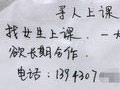 寻人上课
找女生上课.一
欲长期合作.
电话:139430